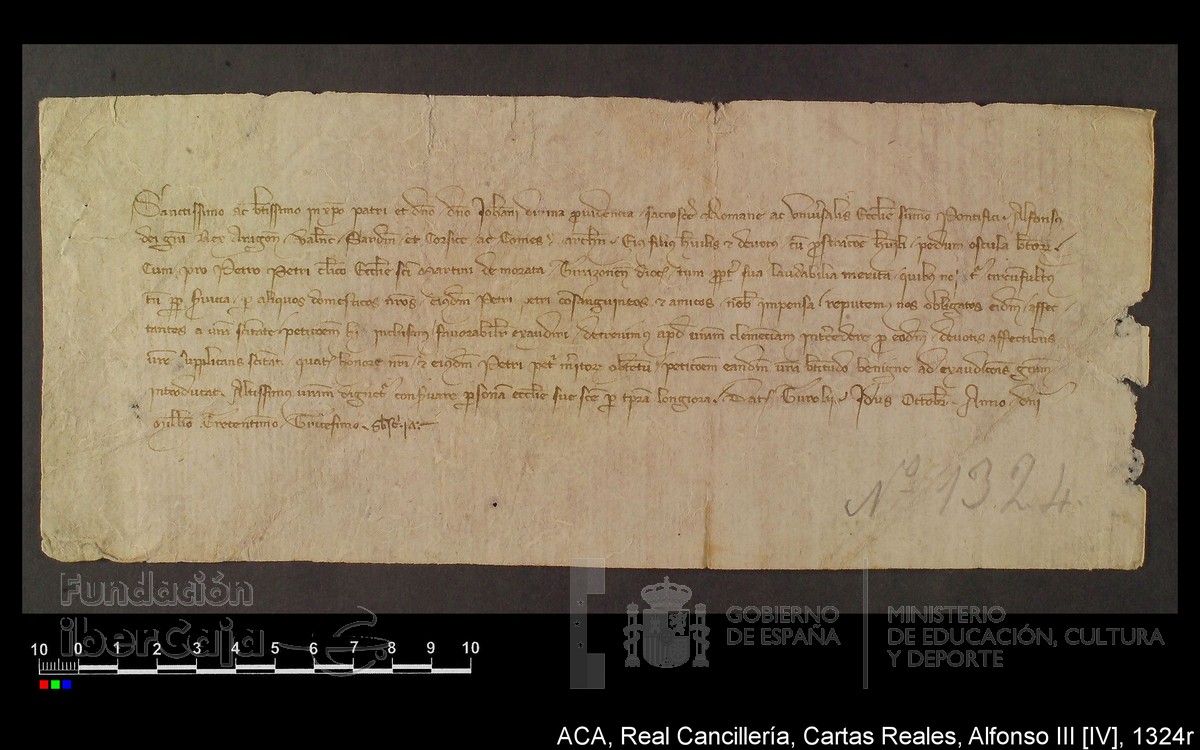 Sanctissimo ac btissimo in xpo patri et dno dno Johani divina providencia sacrosce Romane ac Universalis Ecclie summo Pontifici Alfonsus
dei gra Rex Aragon Valnc Sardin et Corsice ac Comes Barchn Eius filius humilis et devotus cu pedum oscula btor
Cum pro Petro Petri clico Ecclie sci Martini de morata Tirasonen dioc tum sua laudabilia merita quibus
tu servicia p aliquos domesticos nros eiusdm Petri Petri cosanguineos et amicos nob impensa reputemus nos obligatos eidm affec
tantes a vra sanctitate peticoem inclusam favorabilit exaudiri decrevimus apd vram clemenciam intercedere p eodm devotis affectibus
vre supplicans sanctitati quat honore nri et eiusdm Petri obtetu peticoem eandm vra btitudo benigne ad exaudicois gram
introducat Altissimus vram dignet conservare psonam ecclie sue sce p tpra longiora Dat Turolii Idus Octobr Anno dni
Millio Trecentesimo Tricesimo
No 1324.
Fundación
iberCaja
GOBIERNO
DE ESPAÑA
MINISTERIO
DE EDUCACIÓN, CULTURA
Y DEPORTE
10 0 1 2 3 4 5 6 7 8 9 10
ACA, Real Cancillería, Cartas Reales, Alfonso III [IV], 1324r